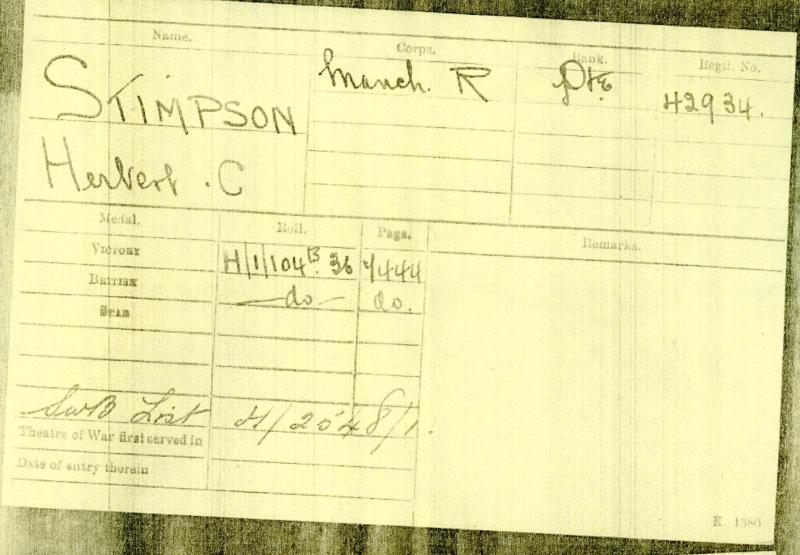 Name. Corps. Rank. Regtl. No.
STIMPSON Manch. R Pte 42934.
Herbert . C
Medal. Roll. Page. Remarks.
VICTORY H/1/104 B. 36 4444
BRITISH —do— do.
STAR
SWB List H/2548/1.
Theatre of War first served in
Date of entry therein
K. 1380